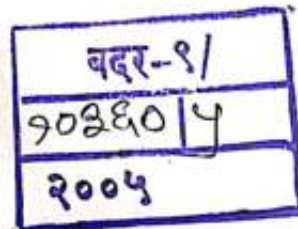 बदर-९/
१०३६०/५
२००५